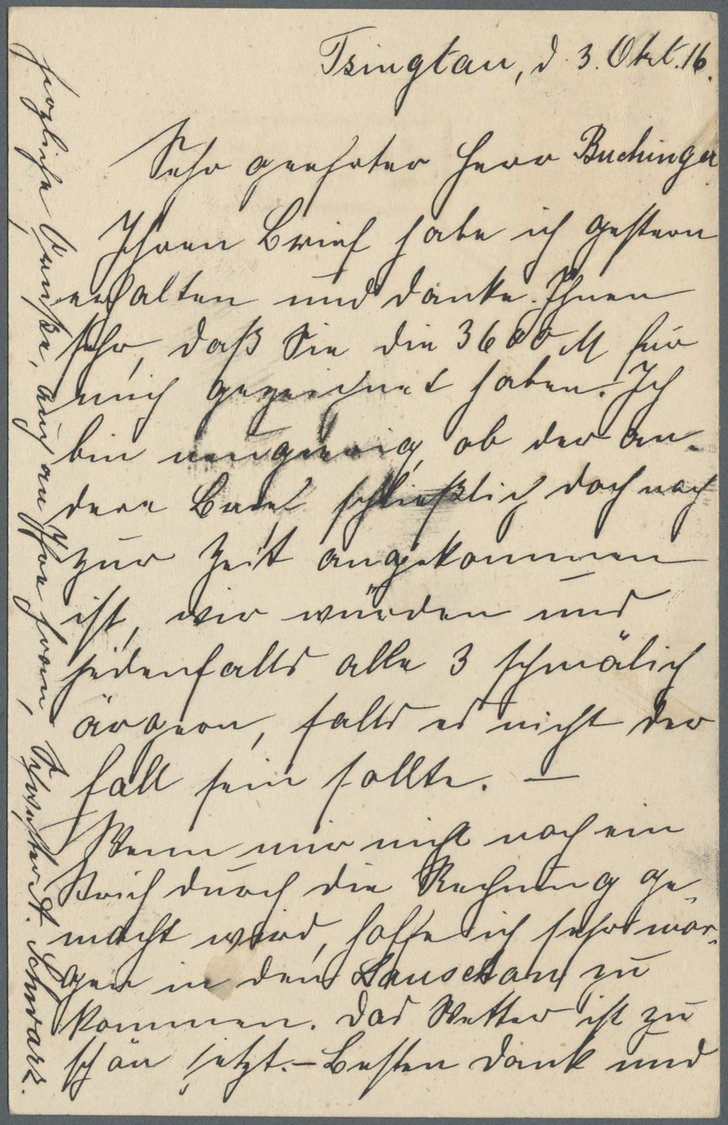 Tsingtau, d. 3. Okt. 16.
Sehr geehrter Herr Buchinger
Ihren Brief habe ich gestern
erhalten und danke Ihnen
sehr, daß Sie die 3600 M für
mich gezeichnet haben. Ich
bin neugierig, ob der an-
dere Brief schließlich doch noch
zur Zeit angekommen
ist, wir würden uns
jedenfalls alle 3 schmälich
ärgern, falls es nicht der
Fall sein sollte. —
Wenn mir nicht noch ein
Strich durch die Rechnung ge-
macht wird, hoffe ich sehr mor-
gen in den Lauschan zu
kommen. Das Wetter ist zu
schön jetzt. — Besten Dank und
herzliche Grüße, auch an Ihre Frau, Schwester A. Schwarz.